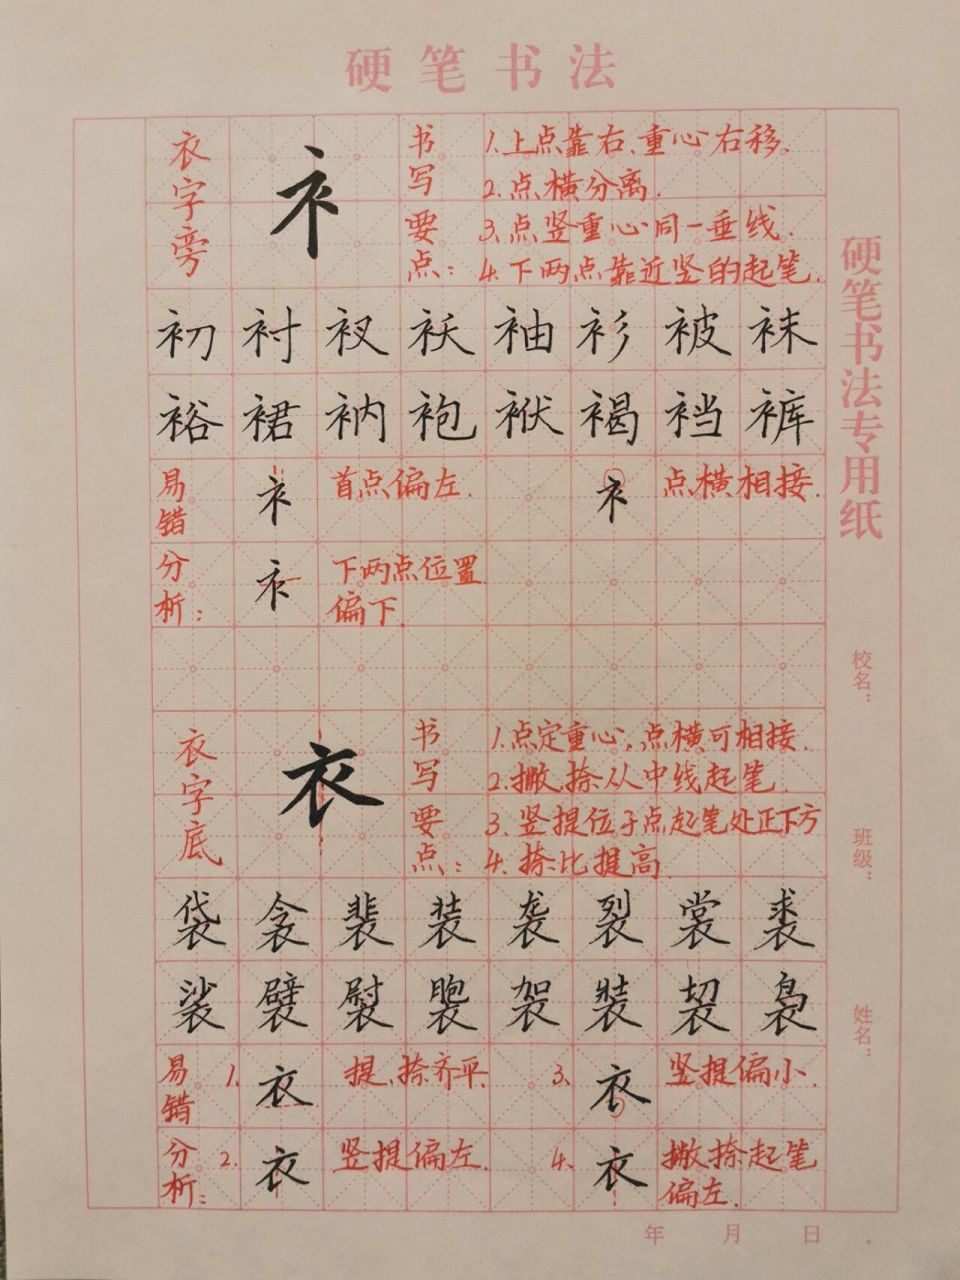 硬笔书法
衣字旁
衤
书写要点：
1.上点靠右、重心右移.
2.点横分离.
3.点竖重心同一垂线.
4.下两点靠近竖的起笔.
初衬衩袄袖衫被袜
裕裙衲袍袱褐裆裤
易错分析：
衤
首点偏左.
衤
点横相接.
衤
下两点位置
偏下.
衣字底
衣
书写要点：
1.点定重心,点横可相接.
2.撇、捺从中线起笔.
3.竖提位于点起笔处正下方
4.捺比提高.
袋衾裴装袭裂裳裘
裟襞
袈
易错分析：
1.
衣
提、捺齐平.
3.
衣
竖提偏小.
2.
衣
竖提偏左.
4.
衣
撇捺起笔
偏左.
硬笔书法专用纸
校名：
班级：
姓名：
年 月 日